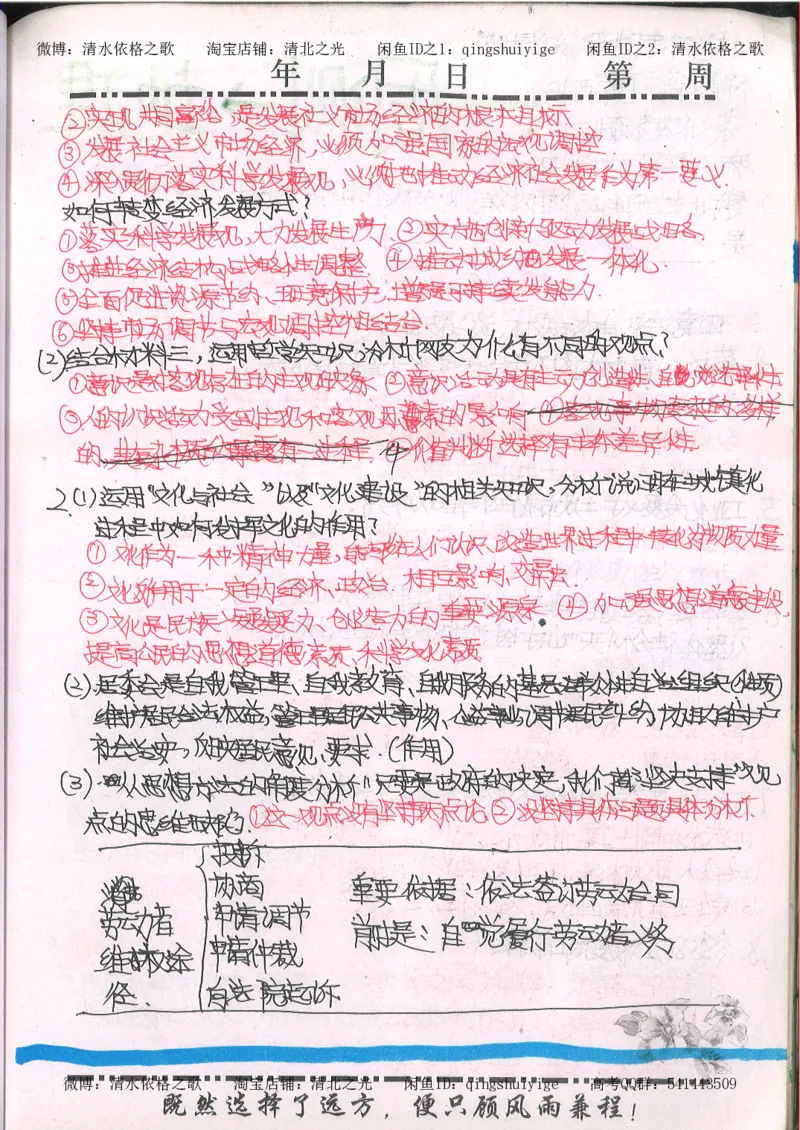 微博：清水依格之歌 淘宝店铺：清北之光 闲鱼ID之1：qingshuiyige 闲鱼ID之2：清水依格之歌
年 月 日 第 周
②实现共同富裕，是发展社会主义市场经济的根本目标
③发展社会主义市场经济，必须加强国家的宏观调控
④深入贯彻落实科学发展观，必须把推动经济社会发展作为第一要义.
如何转变经济发展方式？
①落实科学发展观，大力发展生产力 ②实施创新驱动发展战略.
③推进经济结构战略性调整. ④推动城乡发展一体化.
⑤全面促进资源节约、环境保护，增强可持续发展能力.
⑥坚持市场调节与宏观调控相结合
(2)结合材料三，运用哲学知识，分析网友为什么有不同的观点？
①意识是对客观存在的主观映象 ②意识活动具有主动创造性、自觉选择性
③人的认识活动受到主观和客观因素的影响 ④客观事物表现的多样
的 ④价值判断选择有主体差异性.
2.(1)运用“文化与社会”以及“文化建设”的相关知识，分析说明在城镇化
进程中如何发挥文化的作用？
①文化作为一种精神力量，能够在人们认识、改造世界过程中转化为物质力量
②文化反作用于一定的经济、政治. 相互影响，交融.
③文化是民族凝聚力、创造力的重要源泉 ④加强思想道德建设，
提高公民的思想道德素质、科学文化素质
(2).居委会是自我管理、自我教育、自我服务的基层群众性自治组织(性质)
维护居民合法权益，管理居民公共事物、公益事业，调节居民纠纷，协助维护
社会治安，反映居民意见、要求.(作用)
(3).从思想方法的角度分析“只要是政府的决定，我们都坚决支持”观
点的思维. ①这一观点没有坚持两点论，②没坚持具体问题具体分析.
劳动者
维权途
径.
投诉
协商
申请调节
申请仲裁
向法院起诉
重要依据：依法签订劳动合同
前提是：自觉履行劳动者义务
微博：清水依格之歌 淘宝店铺：清北之光 闲鱼ID：qingshuiyige 高考QQ群：541443509
既然选择了远方，便只顾风雨兼程！